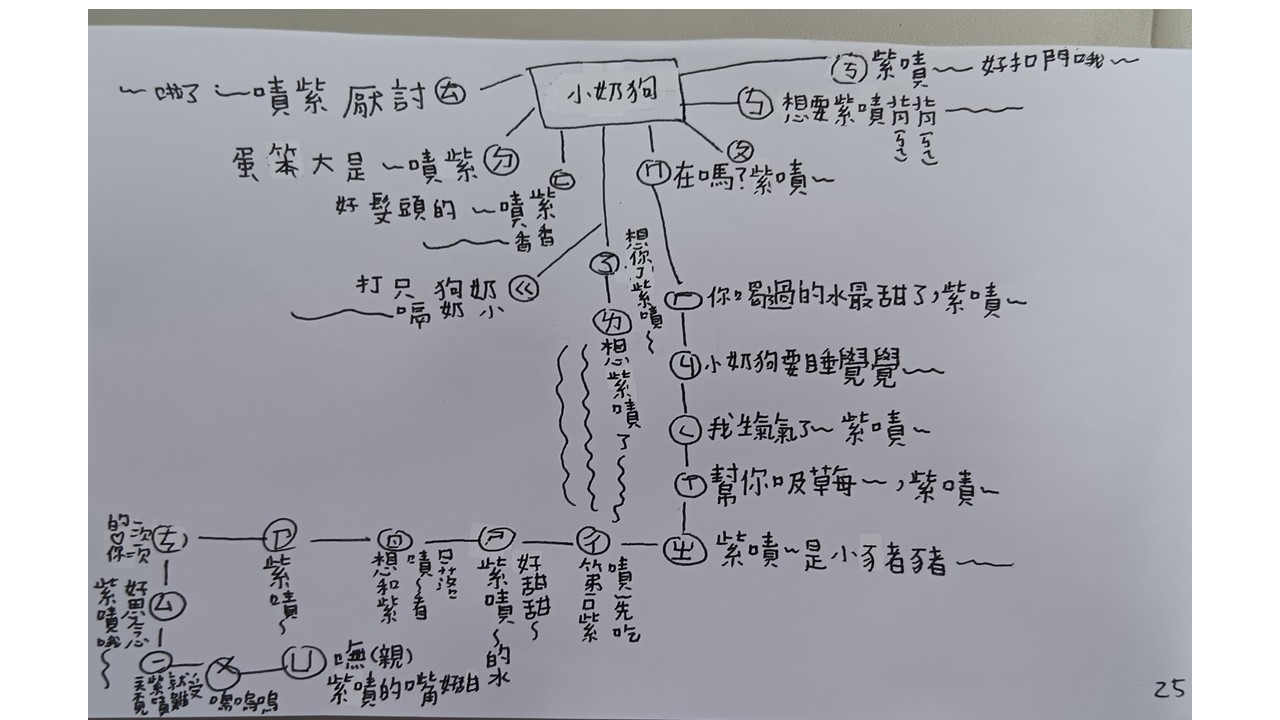 小奶狗
ㄎ 紫嘖～ 好扣門哦～
ㄅ 想要紫嘖背背～
ㄆ
ㄇ 在嗎?紫嘖～
～ 啦了 ～嘖紫 厭討 ㄊ
蛋笨大是～嘖紫 ㄉ
ㄈ
好髮頭的～嘖紫
～香香
打只狗奶 ㄍ
～嗝奶小
ㄋ 想你了紫嘖～
ㄌ 想紫嘖了～
ㄏ 你喝過的水最甜了,紫嘖～
ㄐ 小奶狗要睡覺覺～
ㄑ 我生氣氣了～ 紫嘖～
ㄒ 幫你吸草每～,紫嘖～
ㄓ 紫嘖～是小豬豬～
ㄔ 第一口紫
嘖～先吃
ㄕ 好甜甜～
紫嘖～的水
ㄖ
想和紫
嘖～看
日落
ㄗ 紫嘖～
ㄘ
ㄙ 好思念
紫嘖哦～
ㄧ
ㄨ 嗚嗚嗚
ㄩ 嘸(親)
紫嘖的嘴角好甜
25